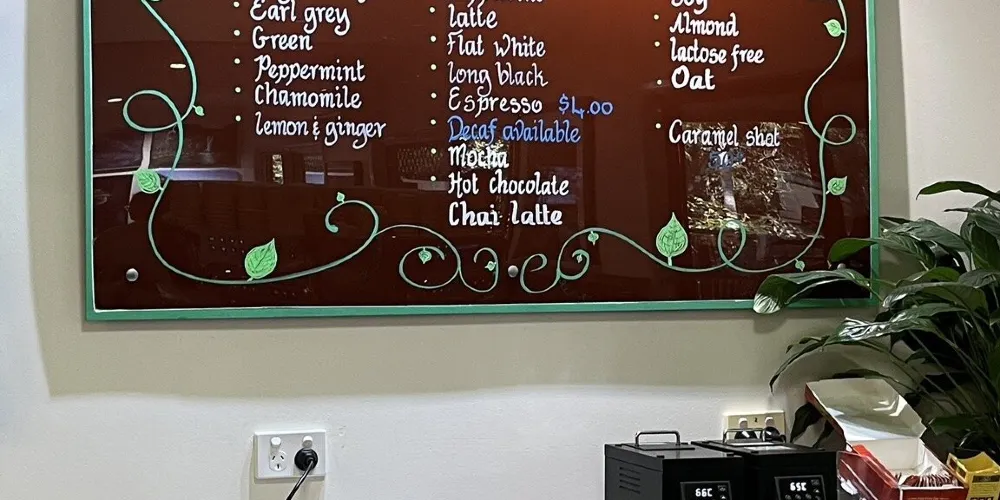 Earl grey
Green
Peppermint
Chamomile
lemon & ginger
latte
Flat White
long black
Espresso $4.00
Decaf available
Mocha
Hot chocolate
Chai latte
Soy
Almond
lactose free
Oat
Caramel shot
66C
65C